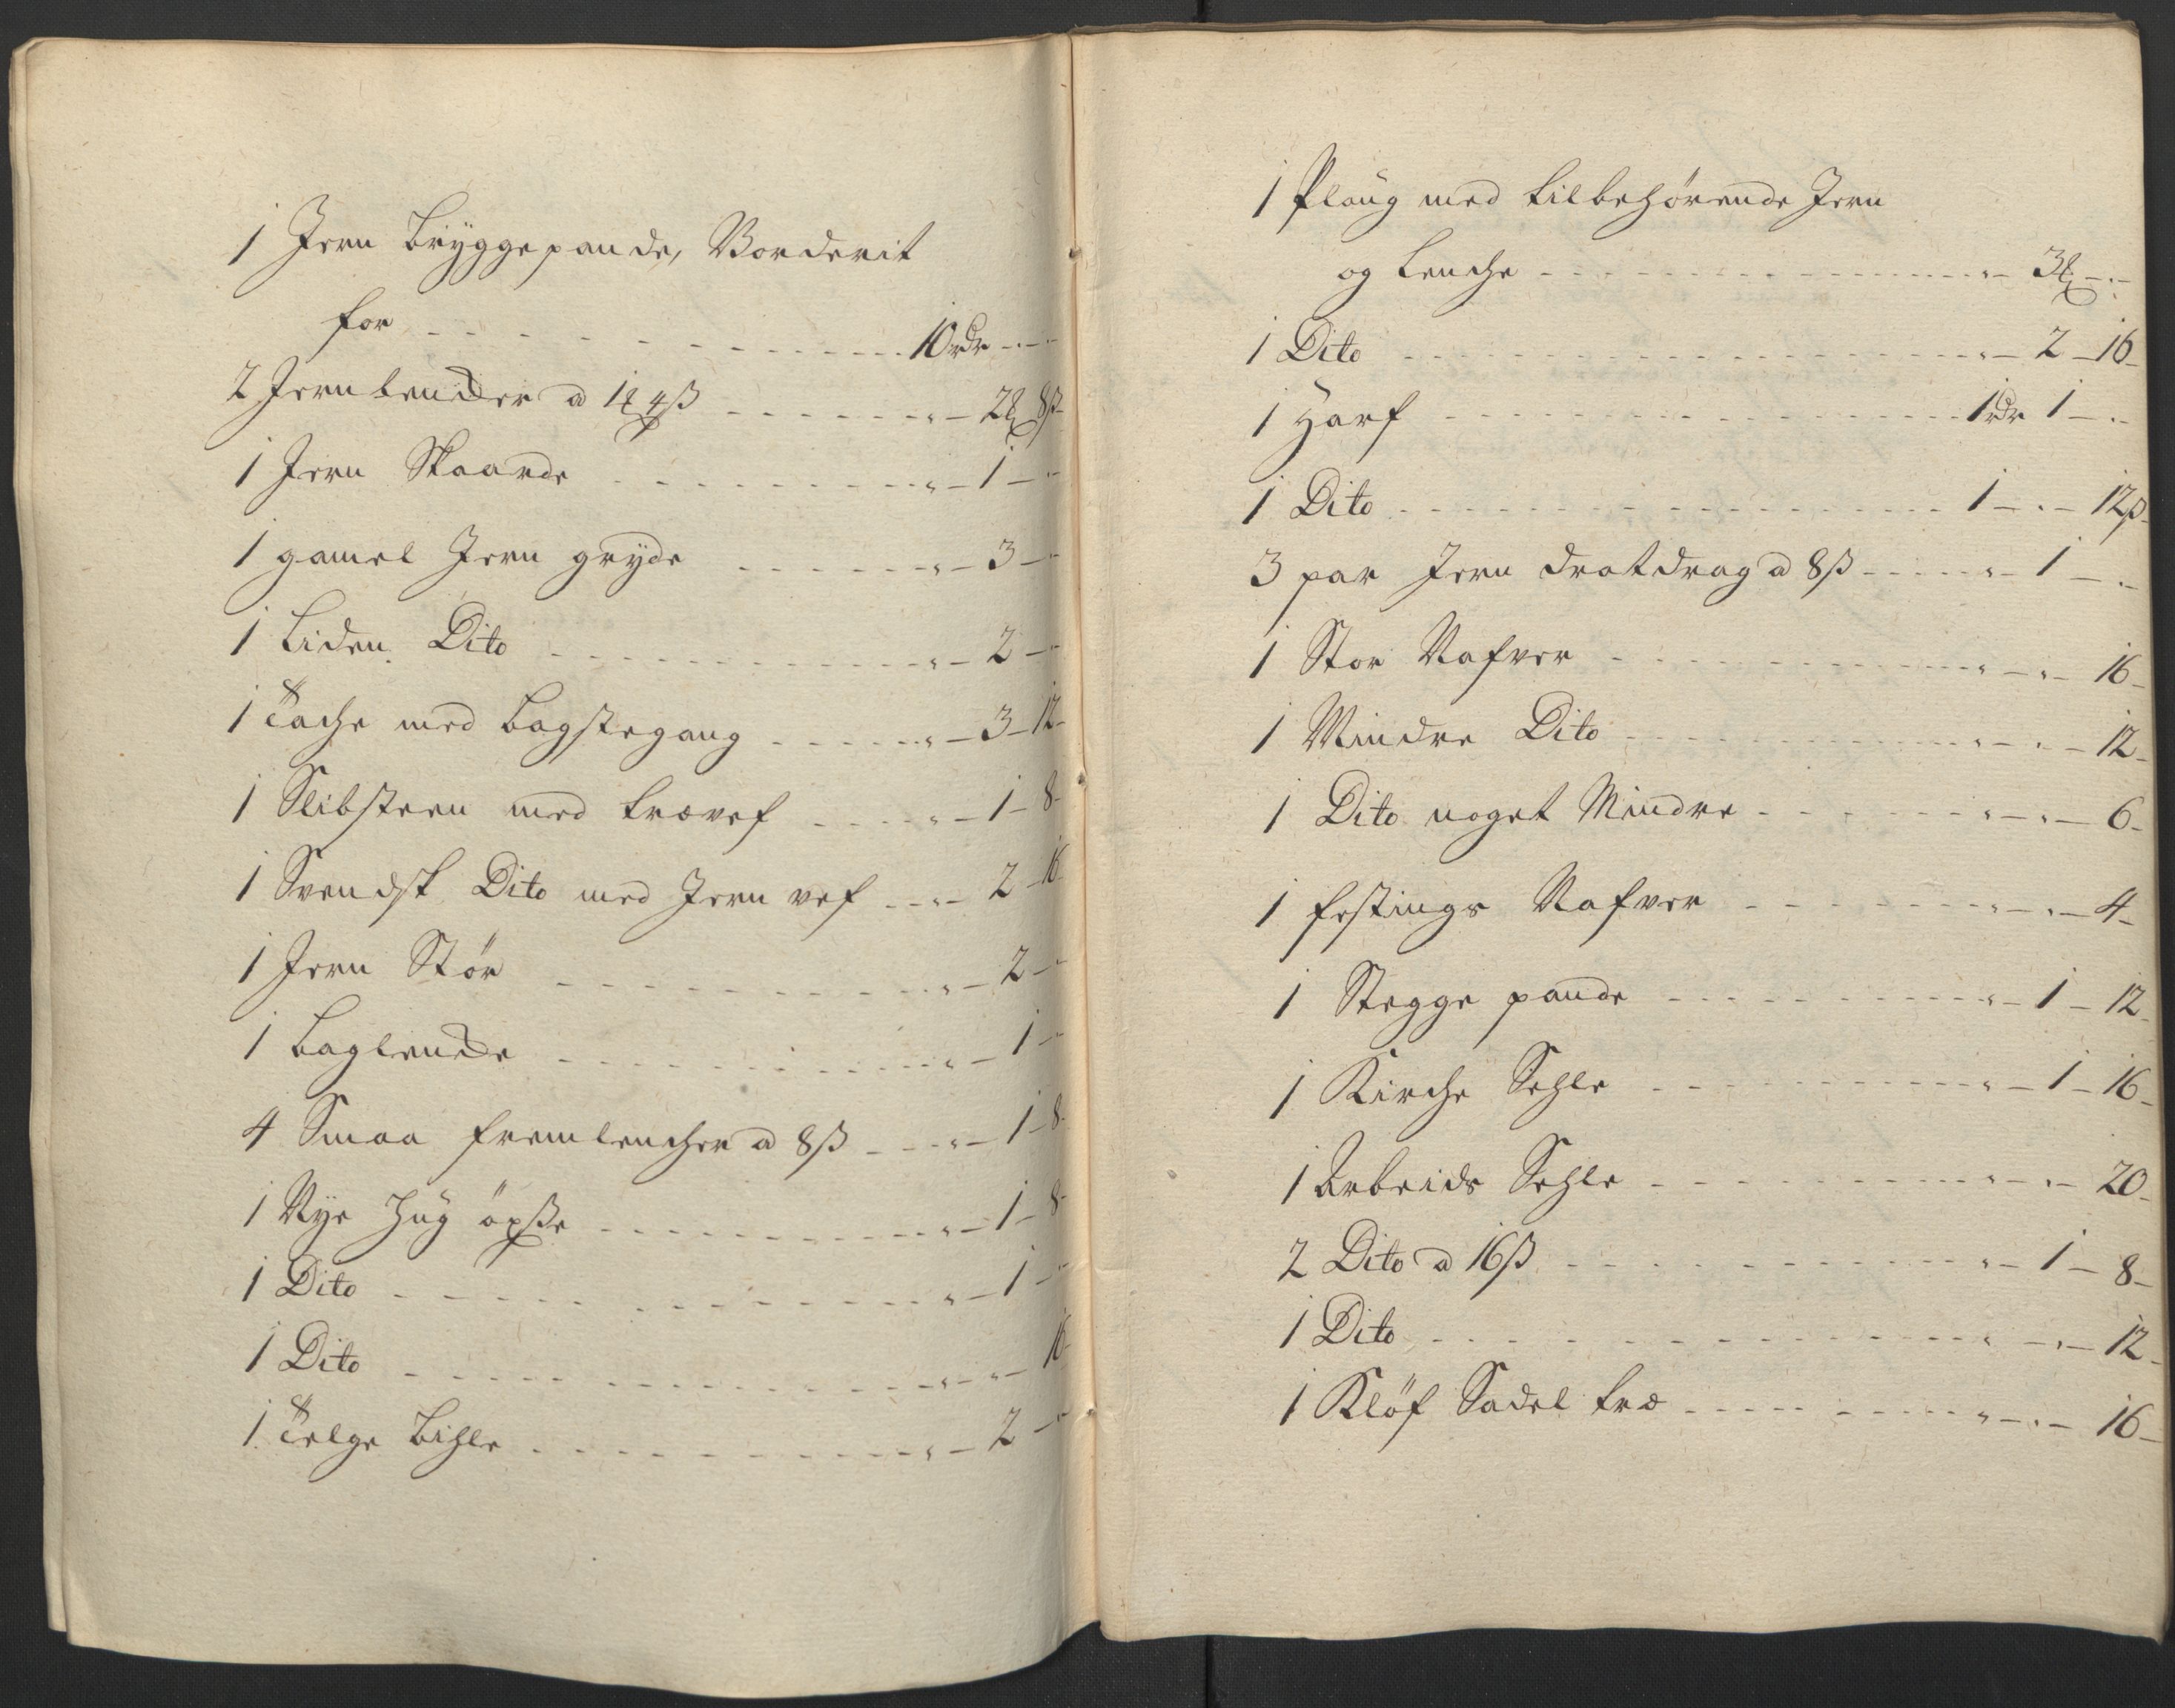 1 Jern Bryggepande, Vorderit
for - - - 10 rdr - " -
2 Jern lender a 1 4ß - - - " - 2 8ß
1 Jern Skaarde - - - " - 1 - "
1 gamel Jern gryde - - - " - 3 - "
1 Liden Dito - - - " - 2 - "
1 Tache med Bagstegang - - - " - 3 - 12
1 Slibsteen med trævef - - - " - 1 - 8
1 Svendsk Dito med Jern vef - - " - 2 - 16
1 Jern Stör - - - " - 2 - "
1 Baglende - - - " - 1 - "
4 Smaa fremlencher a 8ß - - - " - 1 - 8
1 Nye Hug öxse - - - " - 1 - 8
1 Dito - - - " - 1 - "
1 Dito - - - " - " - 16
1 Telge Bihle - - - " - 2 - "
1 Ploug med tilbehörende Jern
og Lenche - - - " - 3 - " -
1 Dito - - - " - 2 - 16
1 Harf - - - 1 rdr 1 - "
1 Dito - - - 1 - " - 12ß
3 par Jern dratdrag a 8ß - - - " - 1 - "
1 Stor Nafver - - - " - " - 16
1 Mindre Dito - - - " - " - 12
1 Dito noget Mindre - - - " - " - 6
1 festings Nafver - - - " - " - 4
1 Stegge pande - - - " - 1 - 12
1 Kirche Sehle - - - " - 1 - 16
1 Arbeids Sehle - - - " - " - 20
2 Dito a 16ß - - - " - 1 - 8
1 Dito - - - " - " - 12
1 Klöf Sadel træ - - - " - " - 16